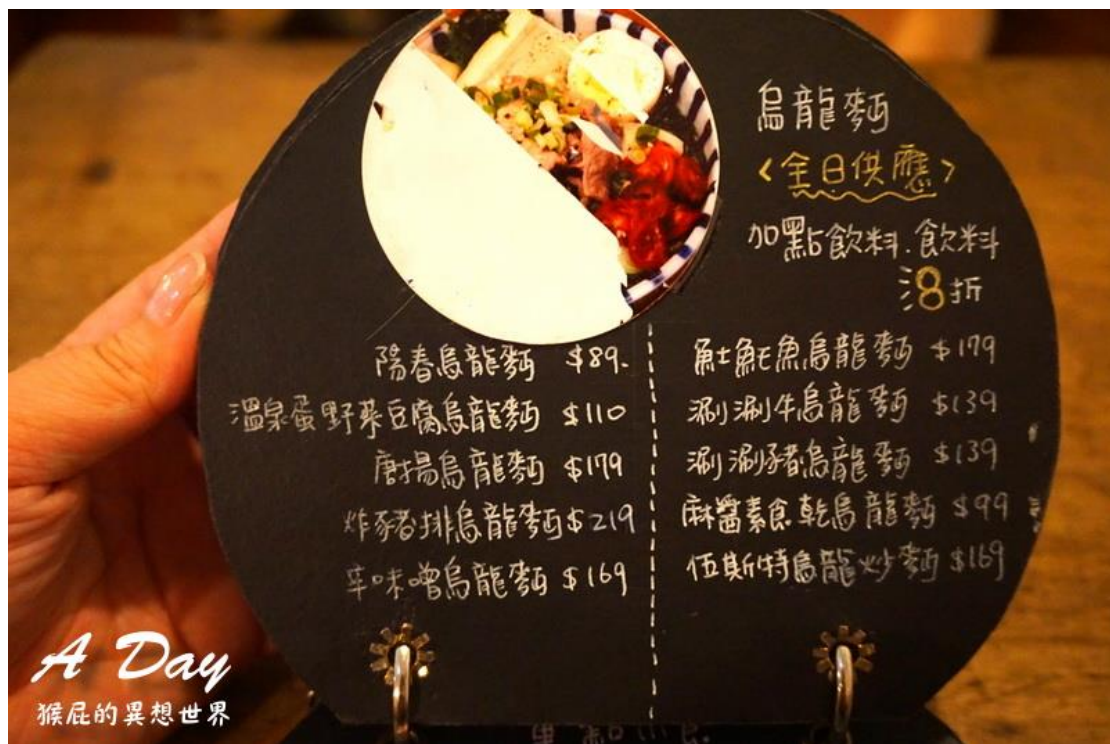 烏龍麵
<全日供應>
加點飲料.飲料
8折
陽春烏龍麵 $89.
溫泉蛋野菜豆腐烏龍麵 $110
唐揚烏龍麵 $179
炸豬排烏龍麵 $219
辛味噌烏龍麵 $169
魠魠魚烏龍麵 $179
涮涮牛烏龍麵 $139
涮涮豬烏龍麵 $139
麻醬素食乾烏龍麵 $99
伍斯特烏龍炒麵 $169
A Day
猴屁的異想世界